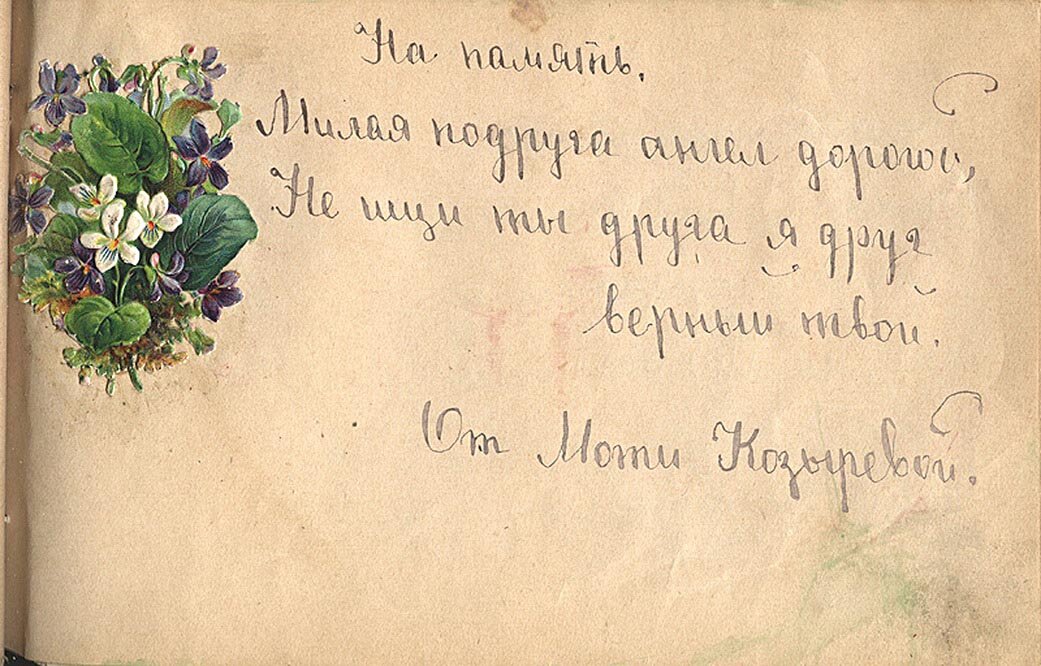 На память.
Милая подруга ангел дорогой,
Не ищи ты друга я друг
верный твой.
От Моти Козыревой.